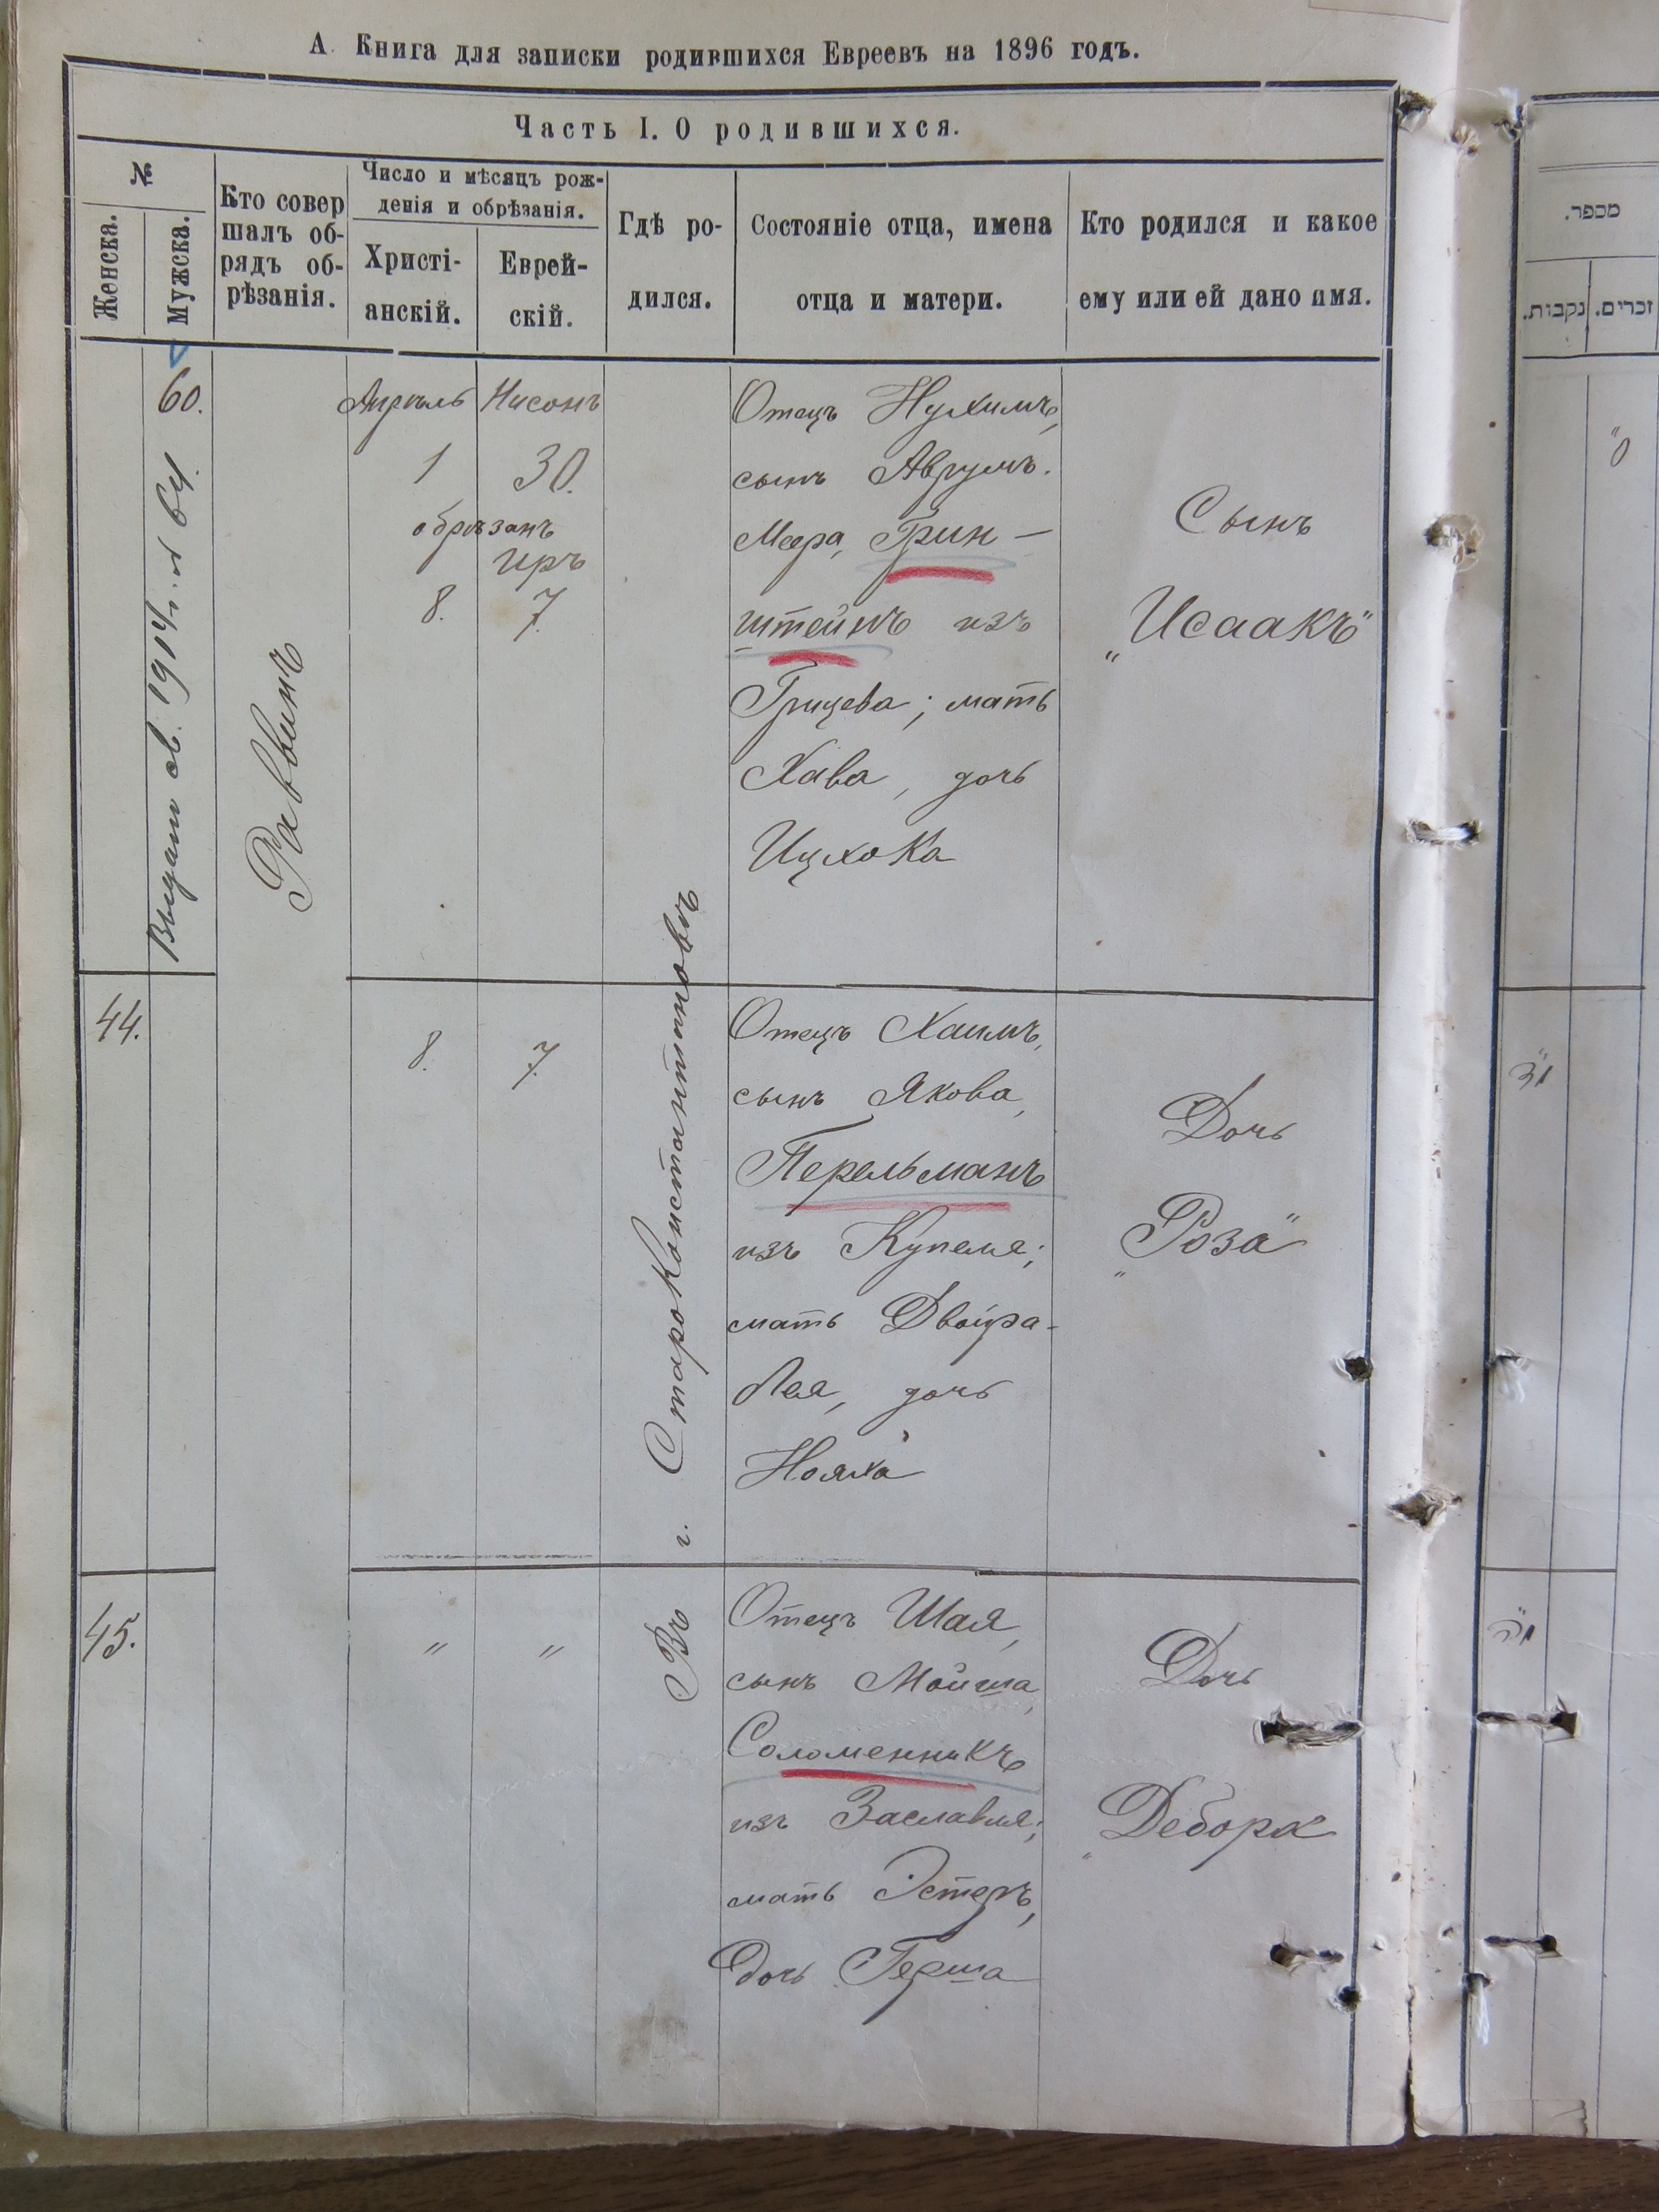 А. Книга для записки родившихся Евреевъ на 1896 годъ.
Часть I. О родившихся.
№
Женска.
Мужска.
Кто совер
шалъ об-
рядъ об-
рѣзанія.
Число и мѣсяцъ рож-
денія и обрѣзанія.
Христі-
анскій.
Еврей-
скій.
Гдѣ ро-
дился.
Состояніе отца, имена
отца и матери.
Кто родился и какое
ему или ей дано имя.
60.
Выдат св. 1914 г. № 64.
Раввинъ
Апрѣль Нисонъ
1 30.
обрѣзанъ
Иръ
8. 7.
Въ г. Староконстантиновѣ
Отецъ Нухимъ,
сынъ Аврумъ.
Меера, Грин-
штейнъ изъ
Грицева; мать
Хава, дочь
Ицхока
Сынъ
„Исаакъ"
44.
8. 7.
Отецъ Хаимъ,
сынъ Якова,
Перельманъ
изъ Купеля;
мать Двойра-
Лея, дочь
Нояха
Дочь
„Роза"
45.
" "
Отецъ Шая,
сынъ Мойша,
Соломенникъ
изъ Заславля;
мать Эстеръ,
дочь Герша
Дочь
„Дебора
מספר.
נקבות.
זכרים.
ס"
מ"ד
מ"ה